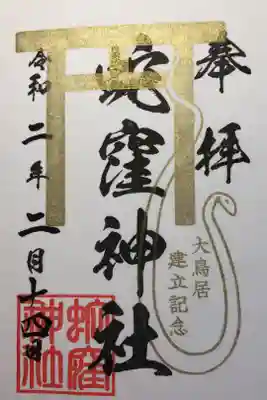 奉拝
大鳥居
建立記念
蛇窪神社
令和二年二月十四日
蛇窪
神社